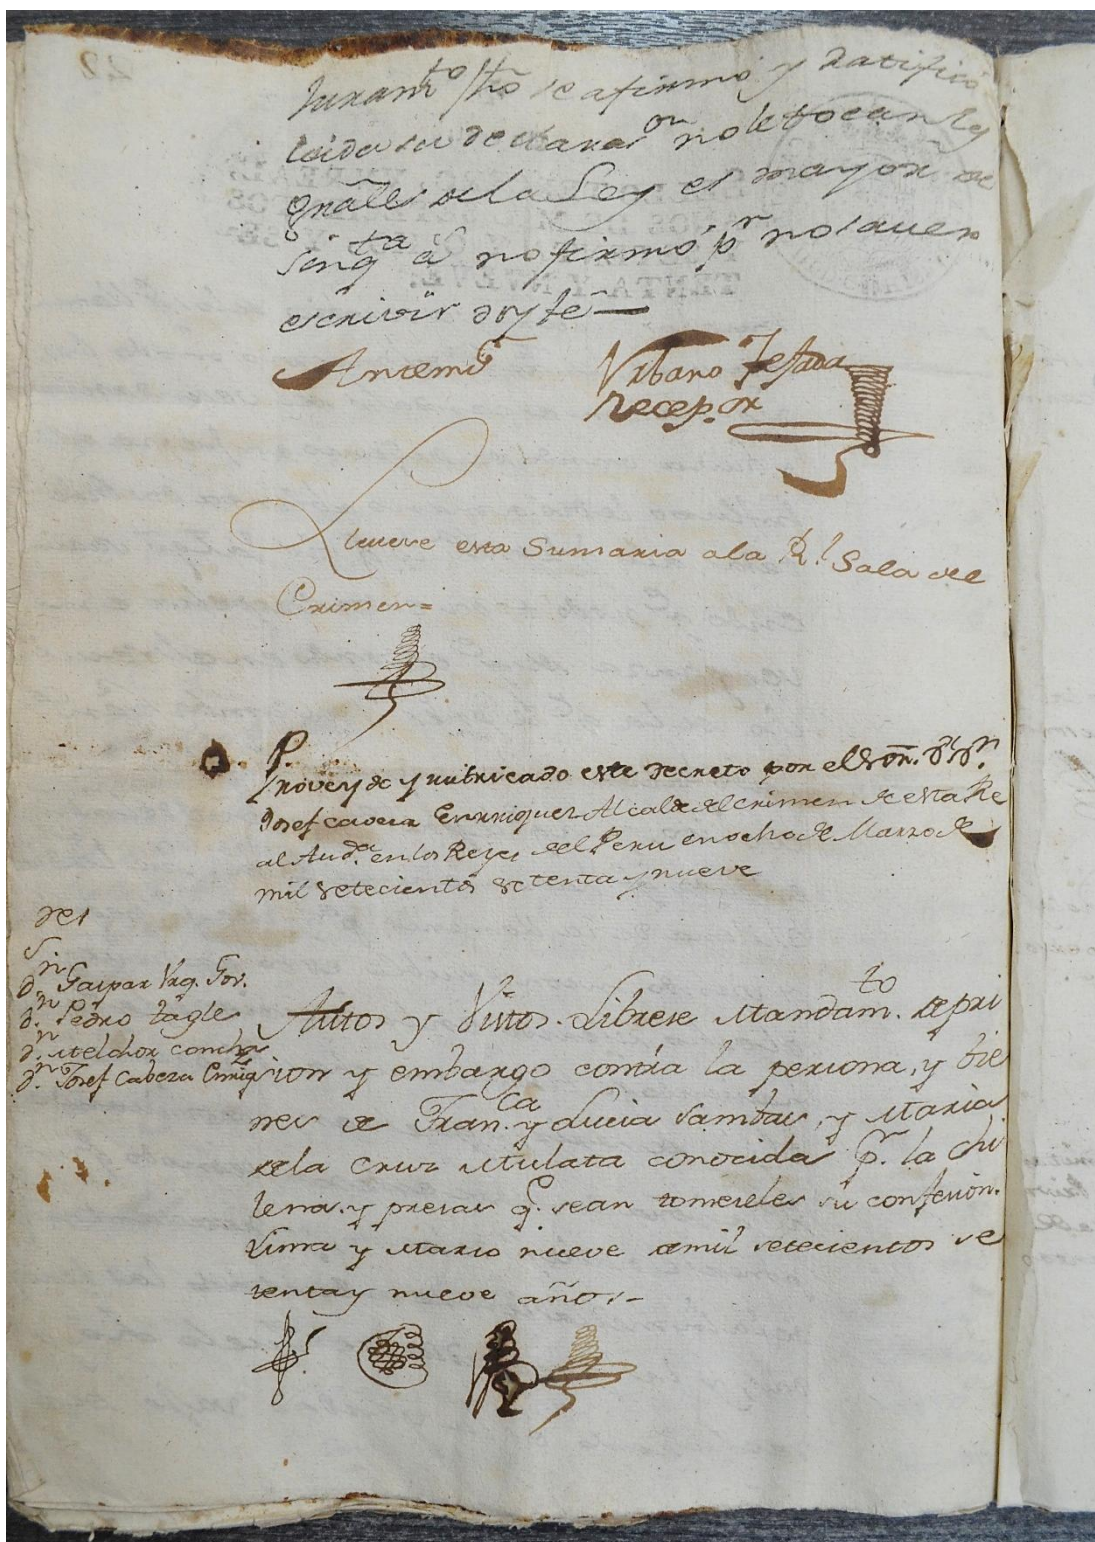 Juramto fho se afirmó y Ratificó
leida su declarason no le tocan las
gnales de la Ley es mayor de
sinqta as no firmó pr no saver
escrivir doy fe —
Antemi
Vrbano Tejada
Recepor
Llevese esta Sumaria a la Rl Sala del
Crimen =
Proveydo y rubricado este decreto por el Sor. Dr. Dn
Josef Caveza Enrriquez Alcalde del crimen de esta Re
al Auda. en los Reyes del Peru en ocho de Marzo de
mil setecientos setenta y nueve
Ses
Dn Gaspar Vrq. Gov.
Dn. Pedro tagle
Dn. Melchor concha
Dn. Josef Cabeza Enriqz
Autos y Vistos. Librese Mandamto. de pri
sion y embargo contra la persona, y bie
nes de Franca y Lucia Sambas, y Maria
de la Cruz Mulata conocida pr. la Chi
lena. y presas q. sean tomeseles su confesion.
Lima y Marzo nueve de mil setecientos se
tenta y nueve años.–